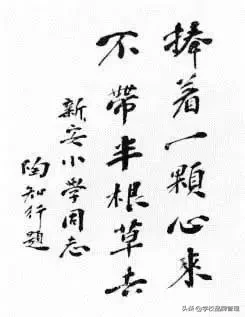 捧着一顆心來
不帶半根草去
新安小學同志
陶知行題
头条@学校品牌管理